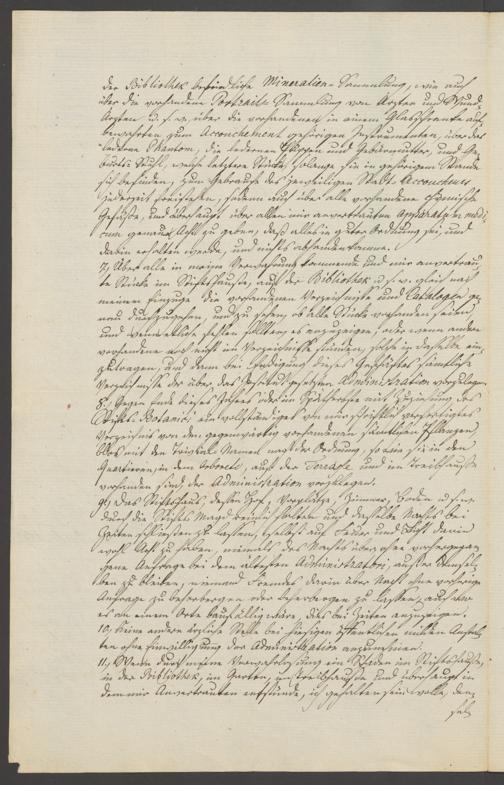 der Bibliothek befindliche Mineralien-Sammlung, wie auch
über die vorhandene Portraits Sammlung von Ärzten und Wund-
Ärzten u. s. w, über die vorhandenen in einem Glasschranke auf-
bewahrten zum Accouchement gehörigen Instrumenten, über das
lederne Phantom, die ledernen Puppen und Gebärmutter, und Ge-
burts Stuhl, welch letztere Stücke solange sie in gehörigem Stande
sich befinden, zum Gebrauche des jeweiligen Stadt-Accoucheurs
jederzeit freistehen, sodann auch über alle vorhandene chemische
Gefäße, und überhaupt über allen mir anvertrauten Apparatum medi-
cum genau Acht zu geben, daß alles in guter Ordnung sei, und
darin erhalten werde, und nichts abhanden komme.
7, Über alle in meine Verwahrung kommende und mir anvertrau-
te Stücke im Stiftshause, auf der Bibliothek u. s. w. gleich nach
meinem Einzuge die vorhandenen Verzeichnisse und Catalogen ge-
nau durchzugehen, und zu sehen, ob alle Stücke vorhanden seien,
und wenn etliche fehlen sollten, es anzuzeigen, oder wenn andere
vorhandene noch nicht im Verzeichnisse stünden, solche in dasselbe ein-
zutragen, und dann bei Endigung dieses Geschäftes sämtliche
Verzeichnisse der über das Institut gesetzten Administration vorzulegen
8, Gegen Ende eines Jahres oder im Spätherbste mit Zuziehung des
Stifts-Botanici ein vollständiges von mir schriftlich verfertigtes
Verzeichnis von den gegenwärtig vorhandenen sämtlichen Pflanzen
blos mit den Trivial Namen nach der Ordnung, so wie sie in den
Quartieren, in dem Arboreto, auf der Terrasse und im Treibhause
vorhanden sind, der Administration vorzulegen.
9, Das Stiftshaus, dessen Hof, Vorplätze, Zimmer, Boden u. s. w.
durch die Stifts Magd rein zu halten und dasselbe Nachts bei
Zeiten schließen zu lassen, selbst auf Feuer und Licht darin
wohl Acht zu haben, niemals des Nachts über, ohne vorhergegan-
gene Anfrage bei dem ältesten Administratori, außer demsel-
ben zu bleiben, niemand Fremdes darin über Nacht ohne vorherige
Anfrage zu beherbergen oder beherbergen zu lassen, auch wo
es an einem Orte baufällig wäre, dies bei Zeiten anzuzeigen.
10, Keine andere ärztliche Stelle bei hiesigen öffentlichen milden Anstal-
ten ohne Einwilligung der Administration anzunehmen.
11, Wenn durch meine Verwahrlosung ein Schaden im Stiftshause,
in der Bibliothek, im Garten, im Treibhause und überhaupt in
dem mir Anvertrauten entstünde, ich gehalten sein wolle, den-
sel-